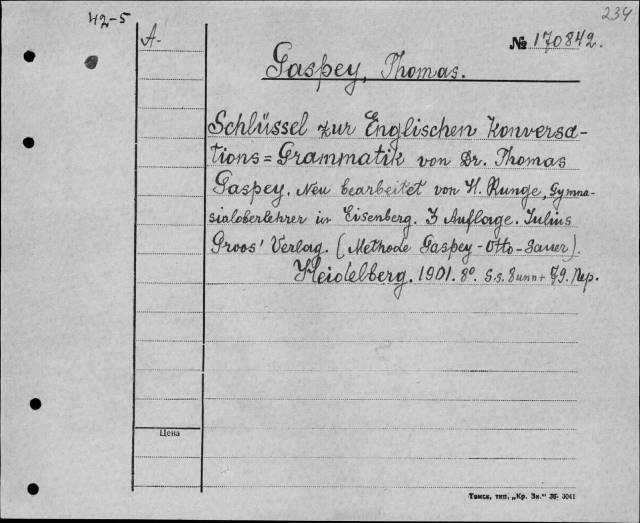 42-5
234
A-
№ 170842.
Gaspey, Thomas.
Schlüssel zur Englischen Konversa-
tions=Grammatik von Dr. Thomas
Gaspey. Neu bearbeitet von H. Runge, Gymna-
sialoberlehrer in Eisenberg. 3 Auflage. Julius
Groos' Verlag. (Methode Gaspey-Otto-Sauer).
Heidelberg. 1901. 8º. S.s.
Цена
Томск, тип. „Кр. Зн." 36- 3041